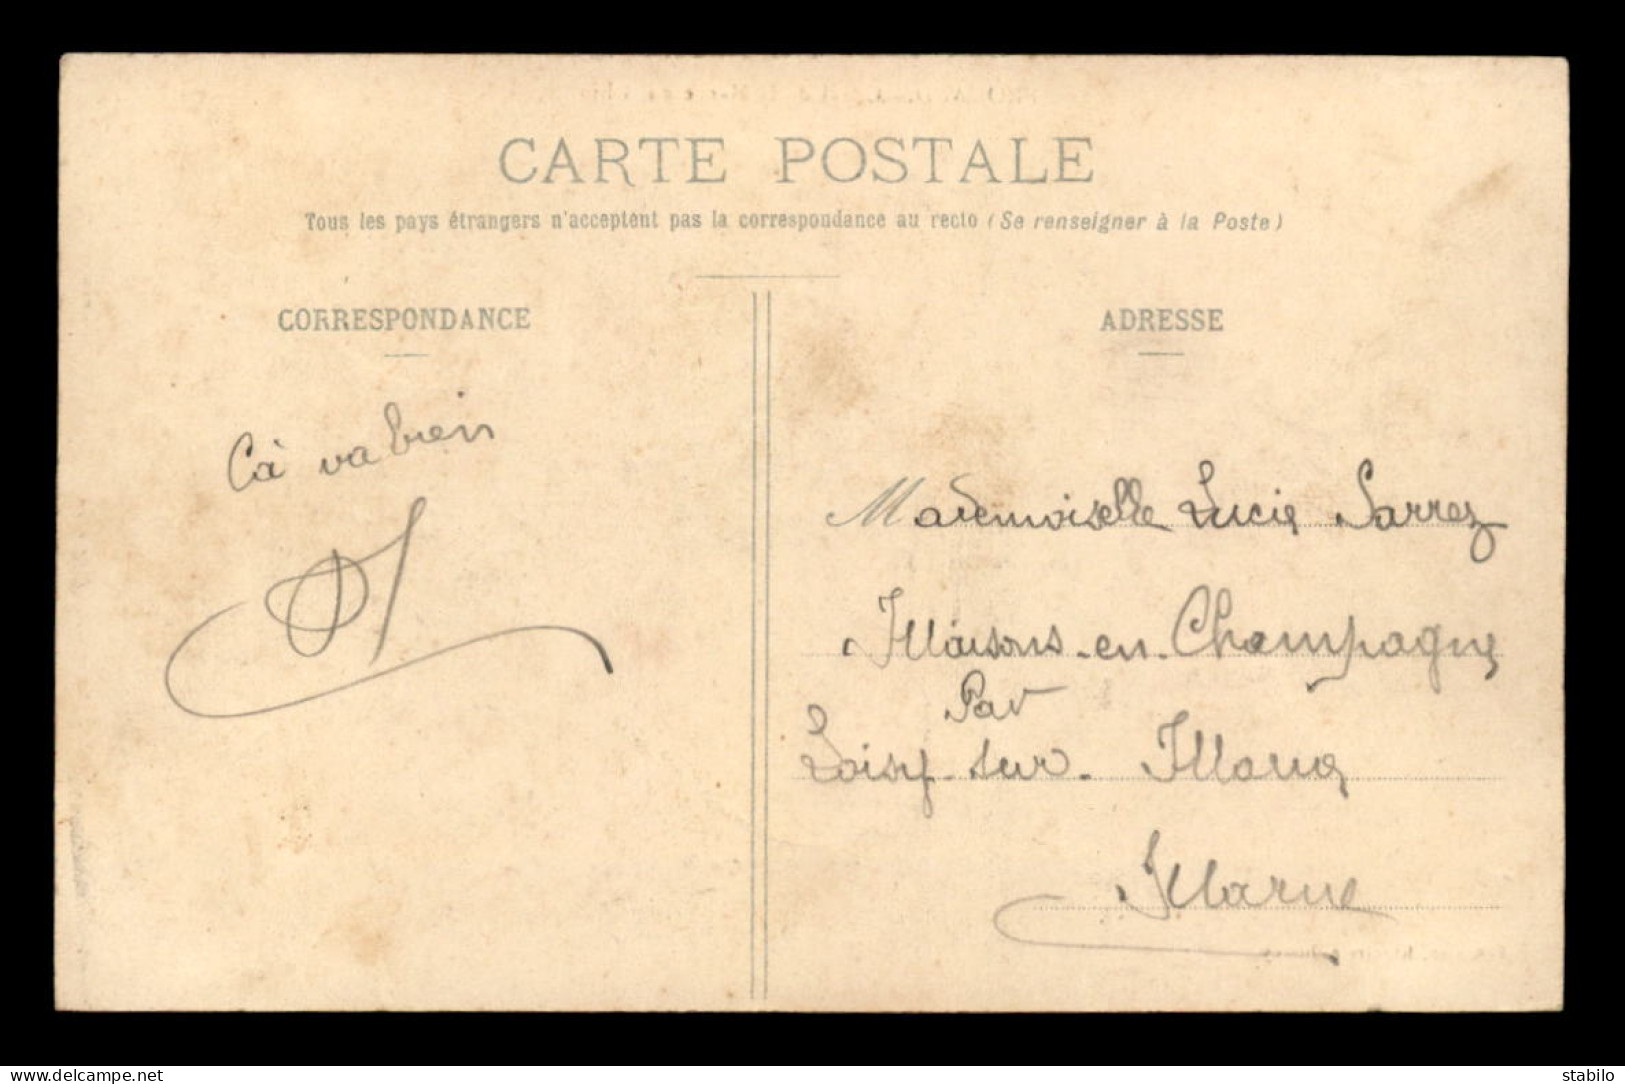 CARTE POSTALE
Tous les pays étrangers n'acceptent pas la correspondance au recto (Se renseigner à la Poste)
CORRESPONDANCE
ADRESSE
Cà va bien
Mademoiselle Lucie Sarrez
Maisons-en-Champagne
Par
Loisy-sur-Marne
Marne
delcampe.net
stabilo